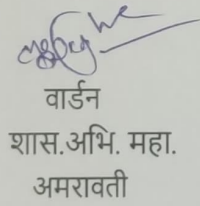 वार्डन
शास.अभि. महा.
अमरावती